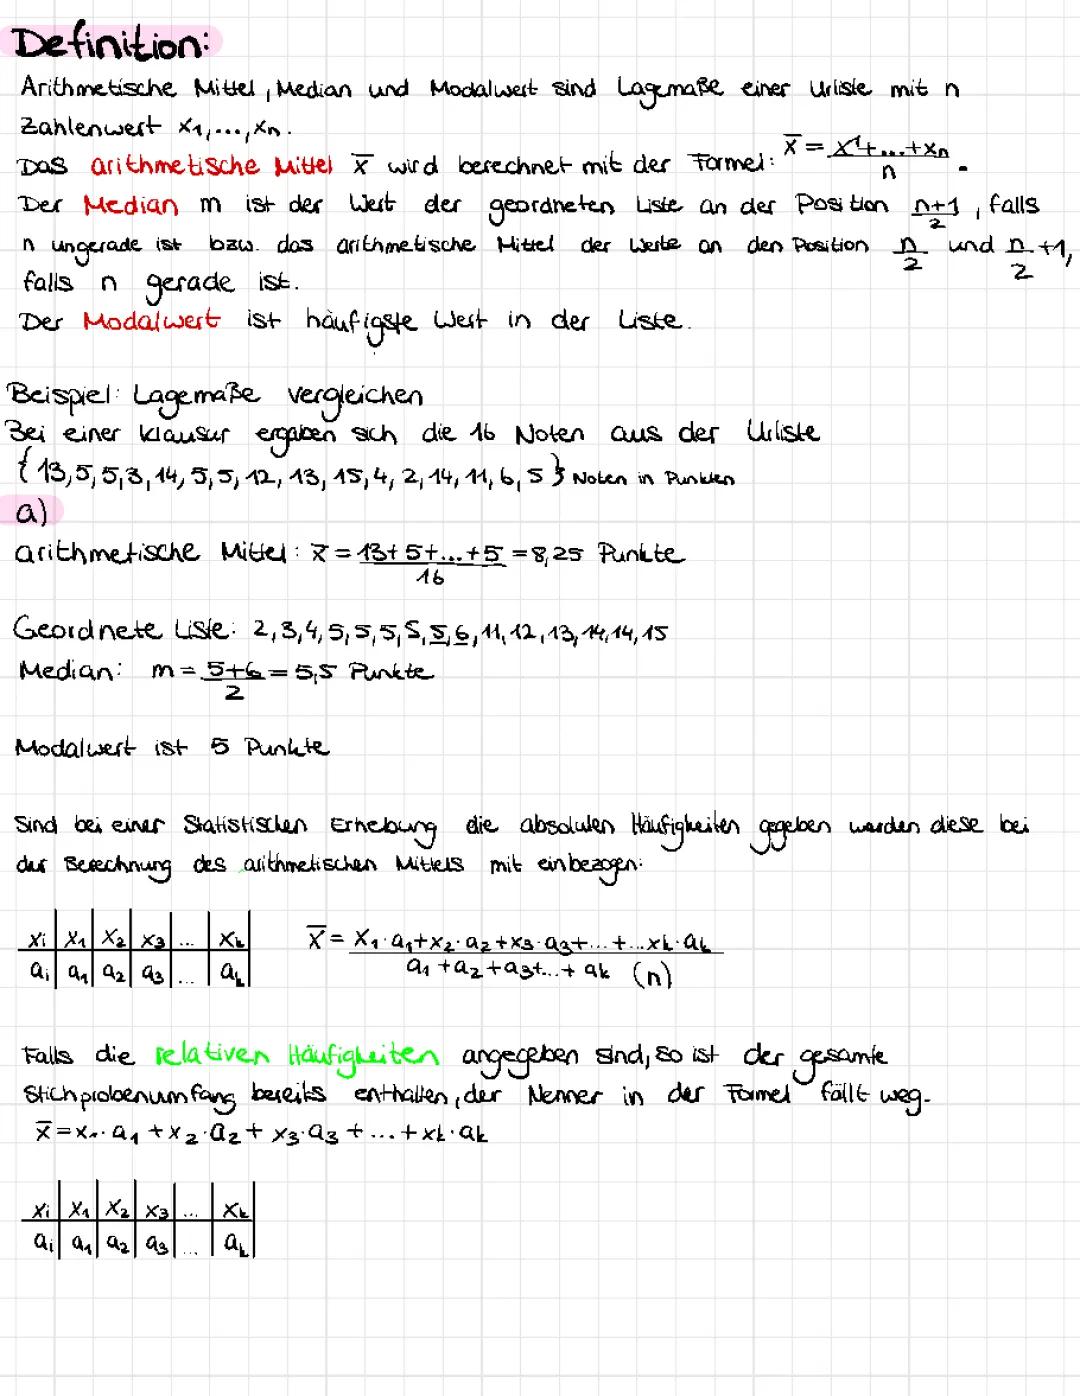 Definition:
Arithmetische Mittel, Median und Modalwert sind Lagemaße einer Urliste mit n
Zahlenwert x₁,...,xₙ.
Das arithmetische Mittel x̄ wird berechnet mit der Formel: x̄ = x1+...+xₙ / n .
Der Median m ist der Wert der geordneten Liste an der Position n+1/2, falls
n ungerade ist bzw. das arithmetische Mittel der Werte an den Position n/2 und n/2 +1,
falls n gerade ist.
Der Modalwert ist häufigste Wert in der Liste.
Beispiel: Lagemaße vergleichen
Bei einer Klausur ergaben sich die 16 Noten aus der Urliste
{13,5,5,3,14,5,5,12,13,15,4,2,14,11,6,5} Noten in Punkten
a)
arithmetische Mittel: x̄ = 13+5+...+5 / 16 = 8,25 Punkte
Geordnete Liste: 2,3,4,5,5,5,5,5,6,11,12,13,14,14,15
Median: m = 5+6 / 2 = 5,5 Punkte
Modalwert ist 5 Punkte
Sind bei einer Statistischen Erhebung die absoluten Häufigkeiten gegeben werden diese bei
der Berechnung des arithmetischen Mittels mit einbezogen:
xi | x₁ | x₂ | x₃ | ... | xₖ
ai | a₁ | a₂ | a₃ | ... | aₖ
x̄ = x₁·a₁+x₂·a₂+x₃·a₃+...+...xₖ·aₖ / a₁+a₂+a₃+...+aₖ (n)
Falls die relativen Häufigkeiten angegeben sind, so ist der gesamte
Stichprobenumfang bereits enthalten, der Nenner in der Formel fällt weg.
x̄ = x₁·a₁+x₂·a₂+x₃·a₃+...+xₖ·aₖ
xi | x₁ | x₂ | x₃ | ... | xₖ
ai | a₁ | a₂ | a₃ | ... | aₖ